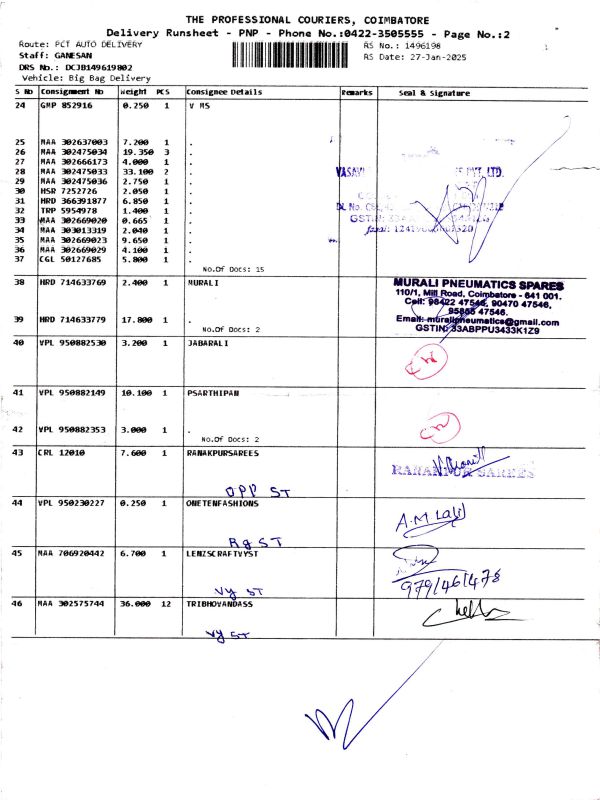 THE PROFESSIONAL COURIERS, COIMBATORE
Delivery Runsheet - PNP - Phone No.:0422-3505555 - Page No.:2
Route: PCT AUTO DELIVERY RS No.: 1496198
Staff: GANESAN RS Date: 27-Jan-2025
DRS No.: DCJB149619802
Vehicle: Big Bag Delivery
S No Consignment No Weight PCS Consignee Details Remarks Seal & Signature
24 GMP 852916 0.250 1 V MS
25 MAA 302637003 7.200 1 .
26 MAA 302475034 19.350 3 .
27 MAA 302666173 4.000 1 .
28 MAA 302475033 33.100 2 .
29 MAA 302475036 2.750 1 .
30 HSR 7252726 2.050 1 .
31 HRD 366391877 6.850 1 .
32 TRP 5954978 1.400 1 .
33 MAA 302669020 0.665 1 .
34 MAA 303013319 2.040 1 .
35 MAA 302669023 9.650 1 .
36 MAA 302669029 4.100 1 .
37 CGL 50127685 5.800 1 .
No.Of Docs: 15
PVT. LTD.
DL No.
GSTIN:
38 HRD 714633769 2.400 1 MURALI
MURALI PNEUMATICS SPARES
110/1, Mill Road, Coimbatore - 641 001.
Cell: 98422 47546, 90470 47546,
95855 47546.
Email: muralipneumatics@gmail.com
GSTIN: 33ABPPU3433K1Z9
39 HRD 714633779 17.800 1 .
No.Of Docs: 2
40 VPL 950882530 3.200 1 JABARALI
41 VPL 950882149 10.100 1 PSARTHIPAN
42 VPL 950882353 3.000 1 .
No.Of Docs: 2
43 CRL 12010 7.600 1 RANAKPURSAREES
RANAKPUR SAREES
OPP ST
44 VPL 950230227 0.250 1 ONETENFASHIONS
A.M Lalil
Rg ST
45 MAA 706920442 6.700 1 LENZSCRAFTVYST
979/461478
Vy ST
46 MAA 302575744 36.000 12 TRIBHOVANDASS
Vy ST